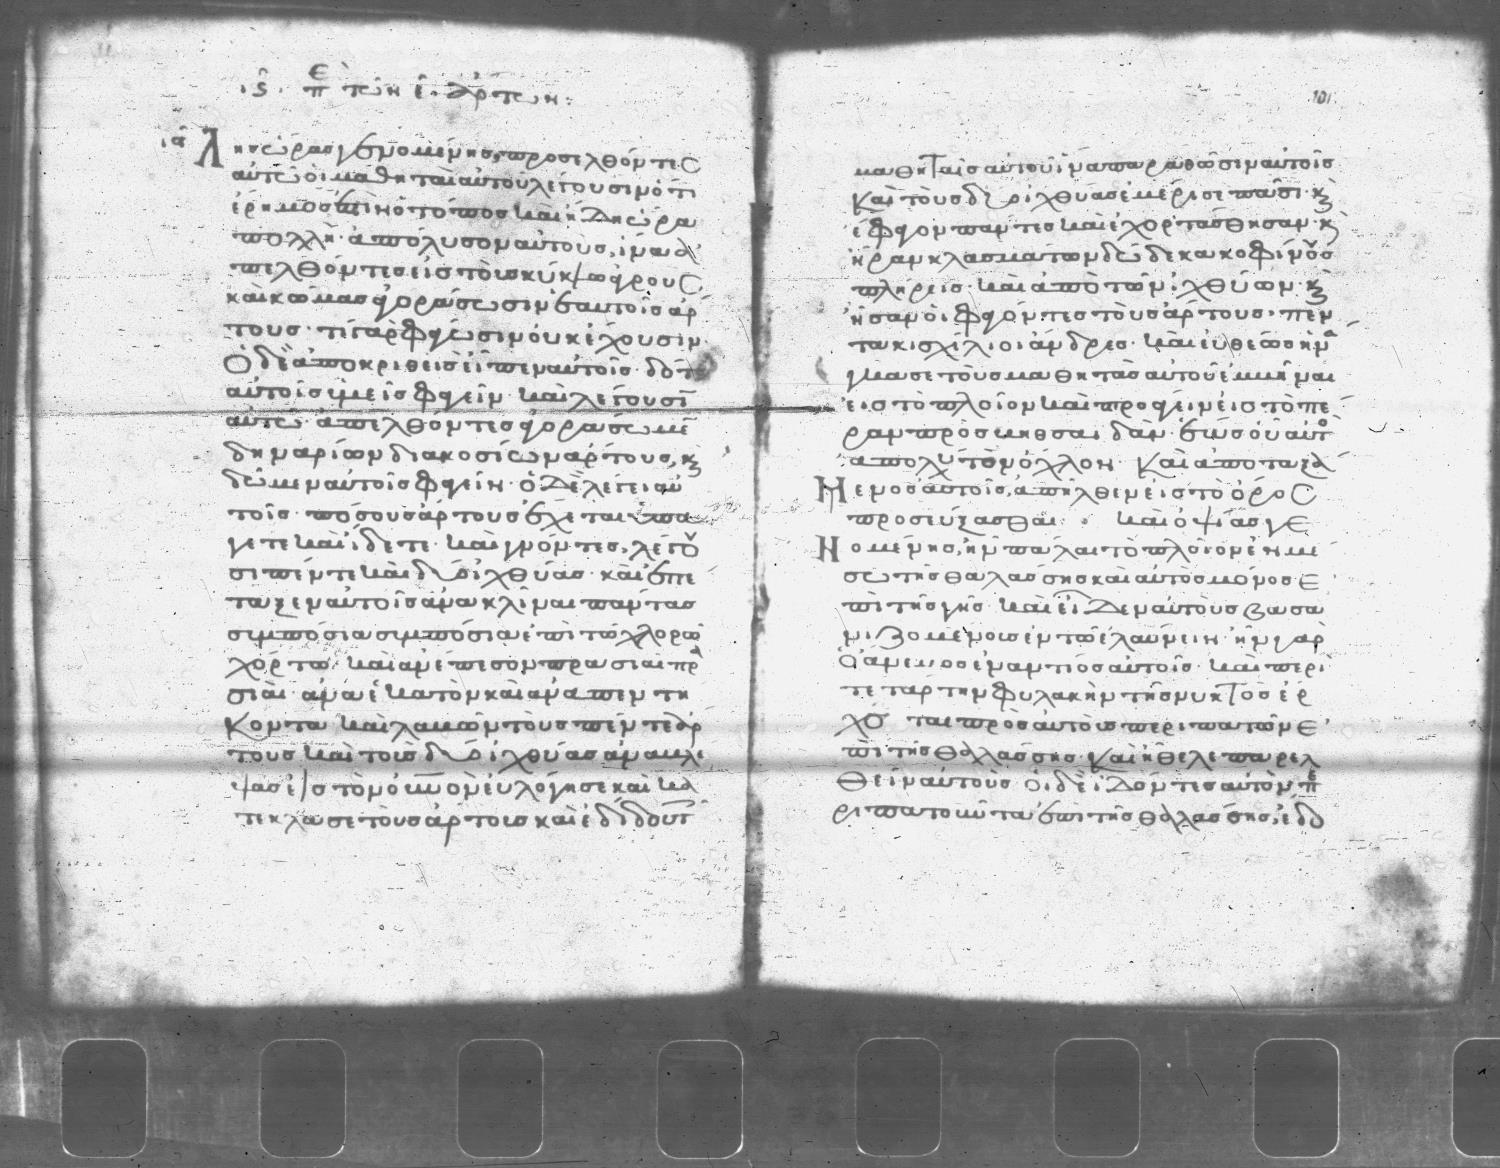 ·ις· πε τῶν ε̂· ἄρτων:
λης ὥρας γενομένης, προσελθόντες
αὐτῶ οἱ μαθηταὶ αὐτοῦ λέγουσιν ὅτι
ἔρημός ἐστιν ὁ τόπος καὶ ἤδη ὥρα
πολλή· ἀπόλυσον αὐτοὺς, ἵνα ἀ
πελθόντες εἰς τοὺς κύκλω ἀγροὺς
καὶ κώμας ἀγοράσωσιν ἑαυτοῖς ἄρ
τους· τί γὰρ φάγωσιν οὐκ ἔχουσιν·
Ὁ δὲ ἀποκριθεὶς εἶπεν αὐτοῖς· δότε
αὐτοῖς ὑμεῖς φαγεῖν· καὶ λέγουσιν
αὐτῶ· ἀπελθόντες ἀγοράσωμεν
δηναρίων διακοσίων ἄρτους, καὶ
δῶμεν αὐτοῖς φαγεῖν· ὁ δὲ λέγει αὐ
τοῖς· πόσους ἄρτους ἔχεται ὑπά
γετε καὶ ἴδετε· καὶ γνόντες, λέγου
σι πέντε καὶ δύο ἰχθύας· καὶ ἐπέ
ταξεν αὐτοῖς ἀνακλῖναι πάντας
συμπόσια συμπόσια ἐπὶ τῶ χλορῶ
χόρτω· καὶ ἀνέπεσον πρασιαὶ πρα
σιαὶ· ἀνὰ ἑκατὸν καὶ ἀνὰ πεντή
κοντα· καὶ λαβὼν τοὺς πέντε ἄρ
τους καὶ τοὺς δύο ἰχθύας ἀναβλέ
ψας εἰς τὸν οὐνὸν εὐλόγησε καὶ κα
τέκλασε τοὺς ἄρτους καὶ ἐδίδου τ
101
μαθηταῖς αὐτοῦ ἵνα παραθῶσιν αὐτοῖς
καὶ τοὺς δύο ἰχθύας ἐμέρισε πᾶσι· καὶ
ἔφαγον πάντες καὶ ἐχορτάσθησαν· καὶ
ἦραν κλασμάτων δώδεκα κοφίνους
πλήρεις· καὶ ἀπὸ τῶν ἰχθύων· καὶ
ἦσαν οἱ φαγόντες τοὺς ἄρτους· πεν
τακισχίλιοι ἄνδρες· καὶ εὐθέως ἠνά
γκασε τοὺς μαθητὰς αὐτοῦ ἐμβῆναι
εἰς τὸ πλοῖον καὶ προάγειν εἰς τὸ πέ
ραν πρὸς βηθσαιδάν· ἕως οὗ αὐτὸς
ἀπολύει τὸν ὄχλον· Καὶ ἀποταξά
μενος αὐτοῖς, ἀπῆλθεν εἰς τὸ ὄρος
προσεύξασθαι· καὶ ὀψίας γε
νομένης, ἦν πάλαι τὸ πλοῖον ἐν μέ
σω τῆς θαλάσσης καὶ αὐτὸς μόνος ἐ
πὶ τῆς γῆς· καὶ εἶδεν αὐτοὺς βασα
νιζομένους ἐν τῶ ἐλαύνειν· ἦν γὰρ
ὁ ἄνεμος ἐναντίος αὐτοῖς· καὶ περὶ
τετάρτην φυλακὴν τῆς νυκτὸς ἔρ
χεται πρὸς αὐτοὺς περιπατῶν ἐ
πὶ τῆς θαλάσσης· καὶ ἤθελε παρελ
θεῖν αὐτούς· οἱ δὲ ἰδόντες αὐτὸν πε
ριπατοῦντα ἐπὶ τῆς θαλάσσης, ἔδο